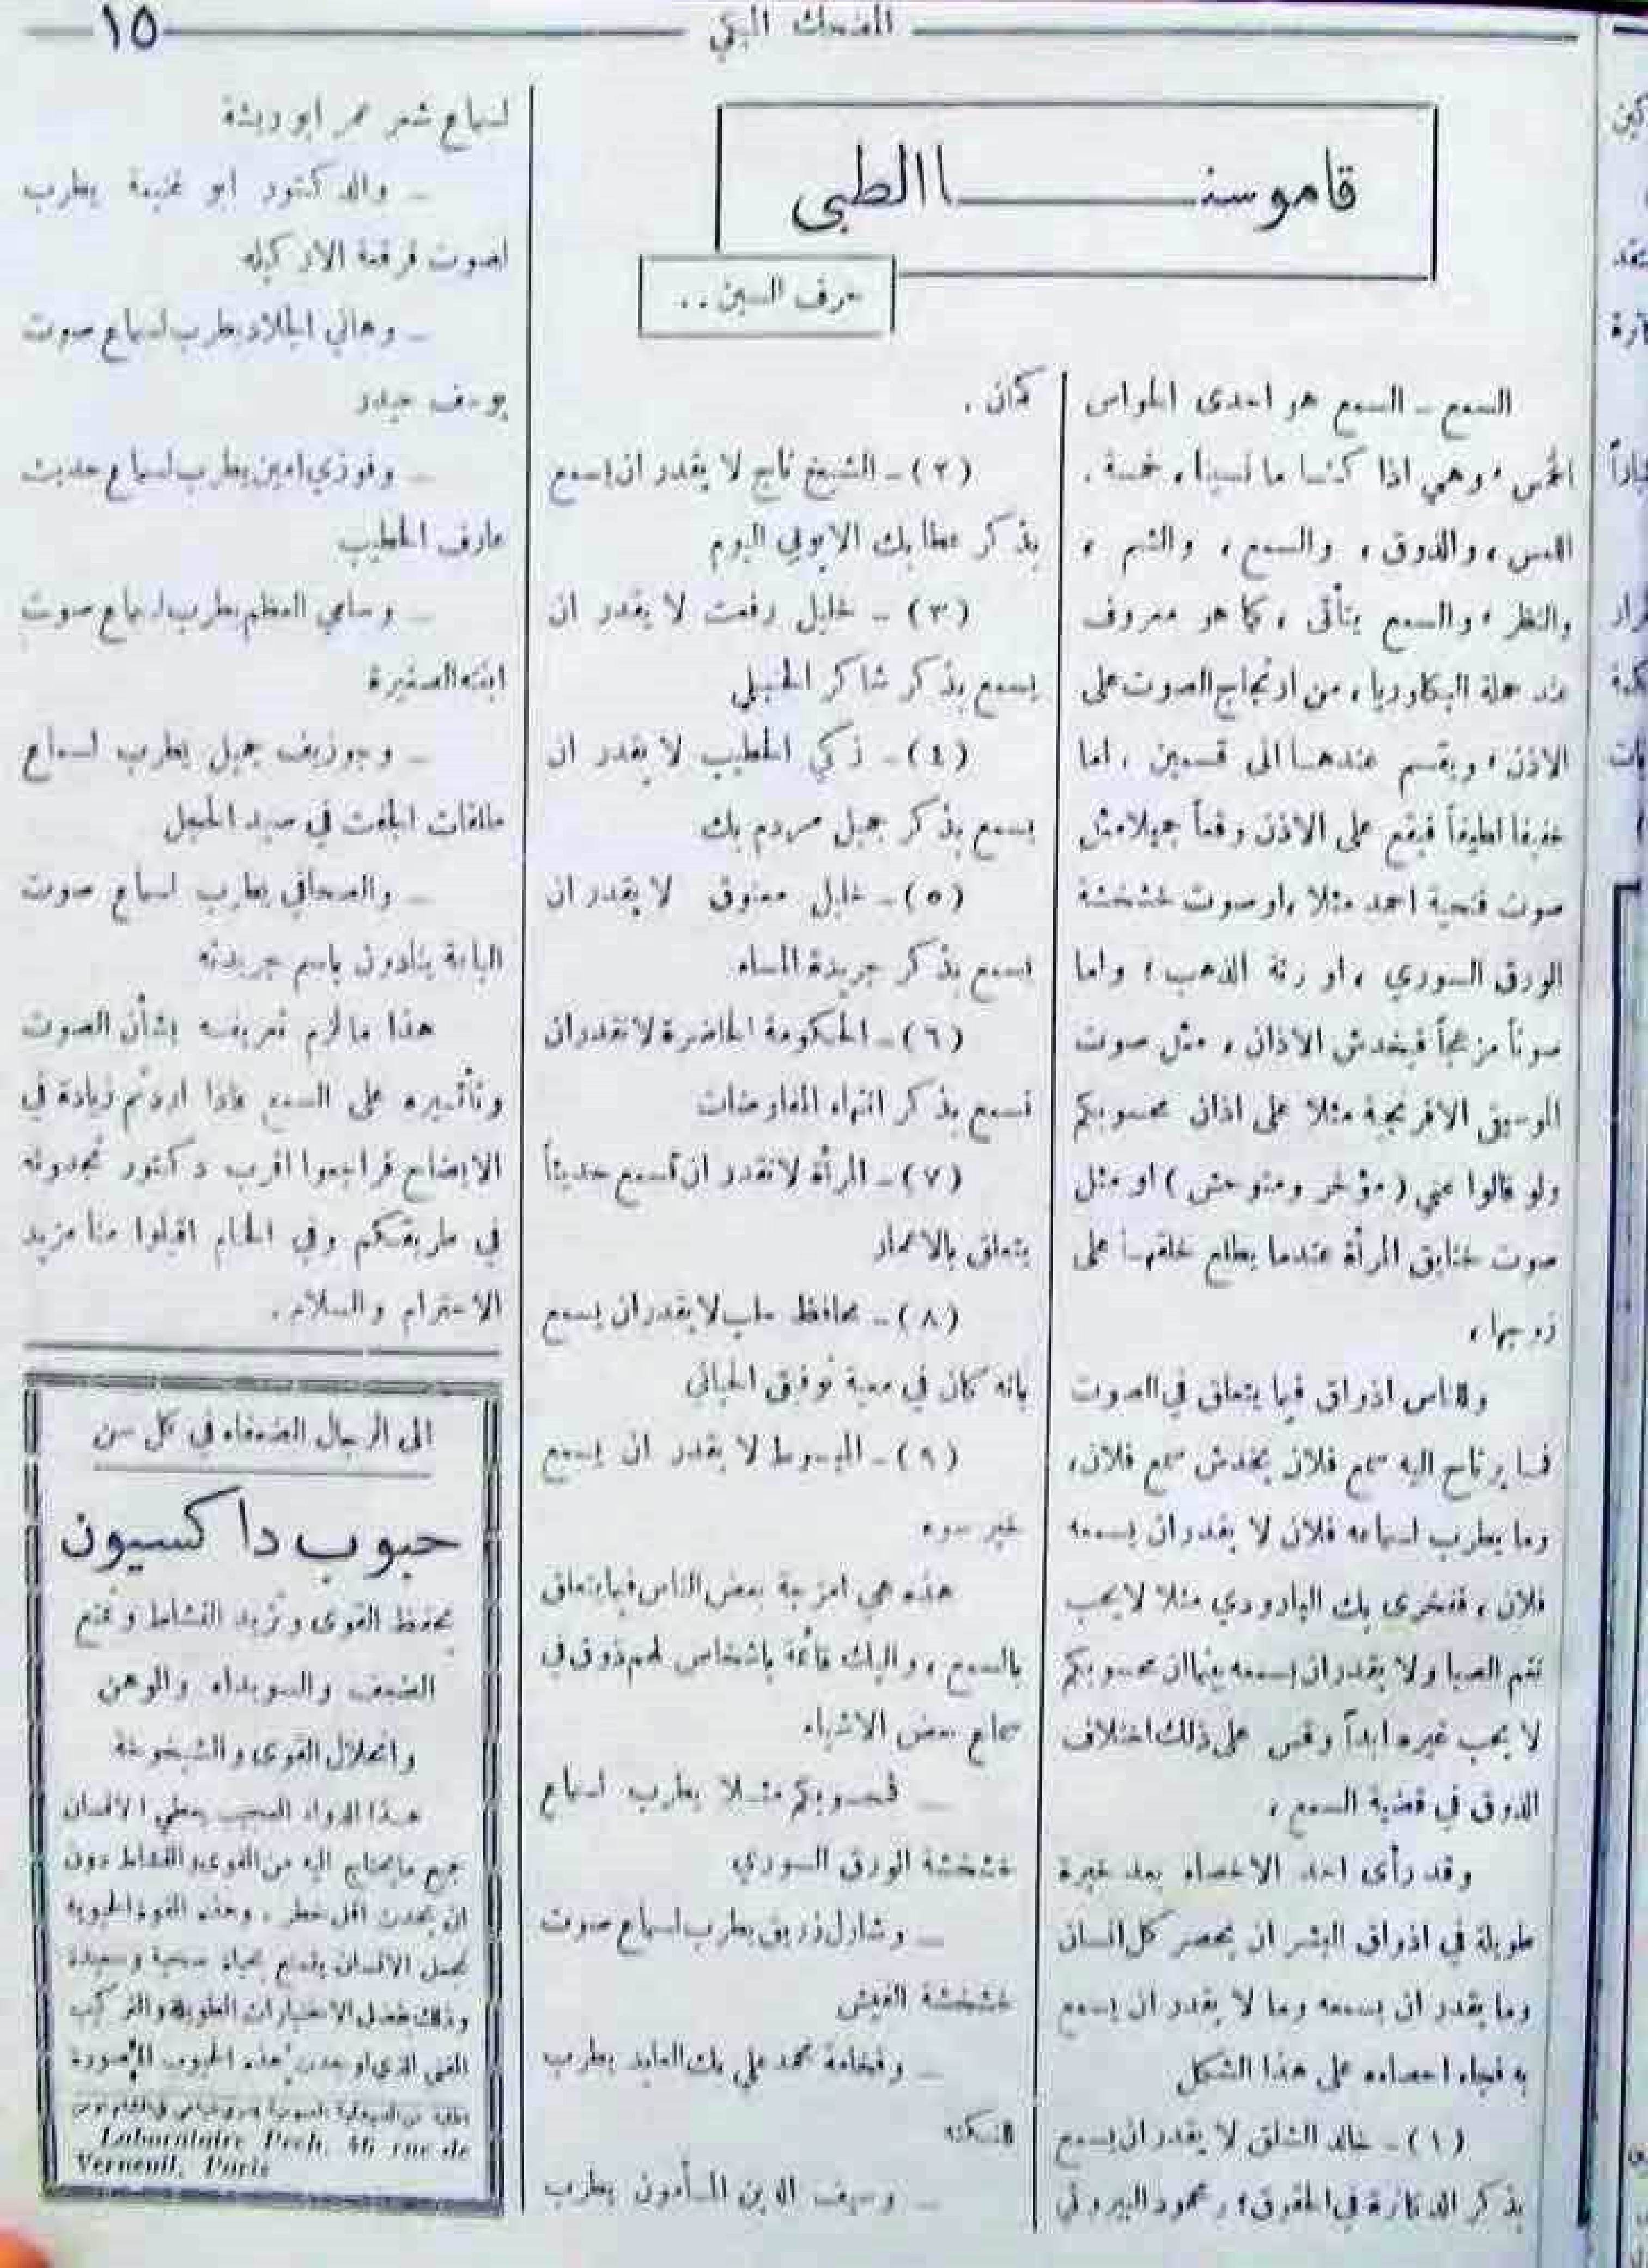 المضحك المبكي
١٥
قاموسنا الطبي
حرف السين . .
السمع ــ السمع هو احدى الحواس
الخمس ، وهي اذا كنا ما نسينا ، خمسة .
اللمس ، والذوق ، والسمع ، والشم ،
والنظر ، والسمع يتأتى ، كما هو معروف
عند حملة البكاوريا ، من ارتجاج الصوت على
الاذن ، ويقسم عندهما الى قسمين ، اما
خفيفا لطيفاً فيقع على الاذن وقعاً جميلا مثل
صوت فتحية احمد مثلا ، او صوت خشخشة
الورق السوري ، او رنة الذهب ؛ واما
صوتاً مزعجاً فيخدش الاذان ، مثل صوت
الموسيقى الافرنجية مثلا على اذان محسوبكم
ولو قالوا عني ( مؤخر ومتوحش ) او مثل
صوت خنايق المرأة عندما يطلع خلقها على
زوجها ،
وللناس اذواق فيما يتعلق في الصوت
فما يرتاح اليه سمع فلان يخدش سمع فلان ،
وما يطرب لسماعه فلان لا يقدر ان يسمعه
فلان ، ففخري بك البارودي مثلا لا يحب
نغم الصبا ولا يقدر ان يسمعه بينما ان محسوبكم
لا يحب غيره ابداً وقس على ذلك اختلاف
الذوق في قضية السمع ،
وقد رأى احد الاخصاء بعد خبرة
طويلة في اذواق البشر ان يحصر كل انسان
وما يقدر ان يسمعه وما لا يقدر ان يسمع
به فجاء احصاءه على هذا الشكل
(١) ــ خالد الشلق لا يقدر ان يسمع
بذكر الدكاترة في الحقوق ؛ ومحمود البيروتي
كمان .
(٢) ــ الشيخ تاج لا يقدر ان يسمع
بذكر عطا بك الايوبي اليوم
(٣) ــ خليل رفعت لا يقدر ان
يسمع بذكر شاكر الحنبلي
(٤) ــ زكي الخطيب لا يقدر ان
يسمع بذكر جميل مردم بك
(٥) ــ خليل معتوق لا يقدر ان
يسمع بذكر جريدة المساء
(٦) ــ الحكومة الحاضرة لا تقدر ان
تسمع بذكر انتهاء المفاوضات
(٧) ــ المرأة لا تقدر ان تسمع حديثاً
يتعلق بالاعمار
(٨) ــ محافظ حلب لا يقدر ان يسمع
بانه كان في معية توفيق الحياني
(٩) ــ المبسوط لا يقدر ان يسمع
خبر سوء
هذه هي امزجة بعض الناس فيما يتعلق
بالسمع ، واليك قائمة باشخاص لهم ذوق في
سماع بعض الاشياء
ــ فمحسوبكم مثلا يطرب لسماع
خشخشة الورق السوري
ــ وشارل زريق يطرب لسماع صوت
خشخشة الفيش
ــ وفخامة محمد علي بك العابد يطرب
للنكتة
ــ وسيف الدين المأمون يطرب
لسماع شعر عمر ابو ريشة
ــ والدكتور ابو غنيمة يطرب
لصوت قرقعة الاركيله
ــ وهاني الجلاد يطرب لسماع صوت
يوسف حيدر
ــ وفوزي امين يطرب لسماع حديث
عارف الخطيب
ــ وسامي العظم يطرب لسماع صوت
ابنته الصغيرة
ــ وجوزيف جميل يطرب لسماع
طلقات الجفت في صيد الحجل
ــ والصحافي يطرب لسماع صوت
الباعة ينادون باسم جريدته
هذا ما لزم تعريفه بشأن الصوت
وتأثيره على السمع فاذا اردتم زيادة في
الايضاح فراجعوا اقرب دكتور تجدونه
في طريقكم وفي الختام اقبلوا منا مزيد
الاحترام والسلام .
الى الرجال الضعفاء في كل سن
حبوب داكسيون
تحفظ القوى وتزيد النشاط وتمنع
الضعف والسويداء والوهن
وانحلال القوى والشيخوخة
هذا الدواء العجيب يعطي الانسان
جميع ما يحتاج اليه من القوى والنشاط دون
ان يحدث اقل خطر ، وهذه القوة الحيوية
تجعل الانسان يتمتع بحياة صحية وسعيدة
وذلك بفضل الاختبارات الطويلة والتركيب
الفني الذي اوجدت هذه الحبوب
Laboratoire Pech. 46 rue de
Verneuil, Paris